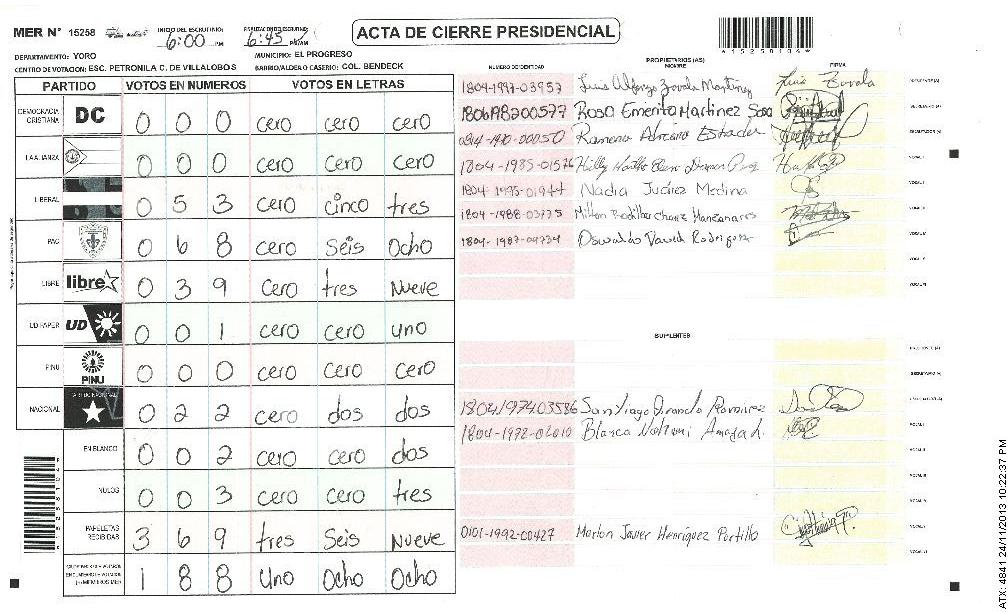 MER N° 15258
INICIO DEL ESCRUTINIO: 6:00 PM
FINALIZACION DE ESCRUTINIO: 6:45 PM/AM
ACTA DE CIERRE PRESIDENCIAL
*15258104*
DEPARTAMENTO: YORO
MUNICIPIO: EL PROGRESO
CENTRO DE VOTACION: ESC. PETRONILA C. DE VILLALOBOS
BARRIO/ALDEA O CASERIO: COL. BENDECK
PARTIDO VOTOS EN NUMEROS VOTOS EN LETRAS
DEMOCRACIA CRISTIANA DC 0 0 0 cero cero cero
LA ALIANZA 0 0 0 cero cero cero
LIBERAL 0 5 3 cero cinco tres
PAC 0 6 8 cero seis ocho
LIBRE libre 0 3 9 cero tres nueve
UD FAPER UD 0 0 1 cero cero uno
PINU PINU 0 0 0 cero cero cero
NACIONAL PARTIDO NACIONAL 0 2 2 cero dos dos
EN BLANCO 0 0 2 cero cero dos
NULOS 0 0 3 cero cero tres
PAPELETAS RECIBIDAS 3 6 9 tres seis nueve
1 8 8 uno ocho ocho
PROPIETARIOS (AS)
NUMERO DE IDENTIDAD NOMBRE FIRMA
1804-1997-03957 Luis Alfonso Zavala Martinez Luis Zavala
1806198200577 Rosa Emerita Martinez Sosa
Ramona
1804-1985-01576
1804-1995-01944 Nadia Juárez Medina
1804-1988-03775 Milton
1804-1987-04734 Oswaldo David Rodriguez
SUPLENTES
1804197403586 Santiago Ramirez
1804-1972-02010 Blanca Nohemi Amaya L.
0101-1992-00427 Marlon Javier Henriquez Portillo
ATX: 4841 24/11/2013 10:22:37 PM